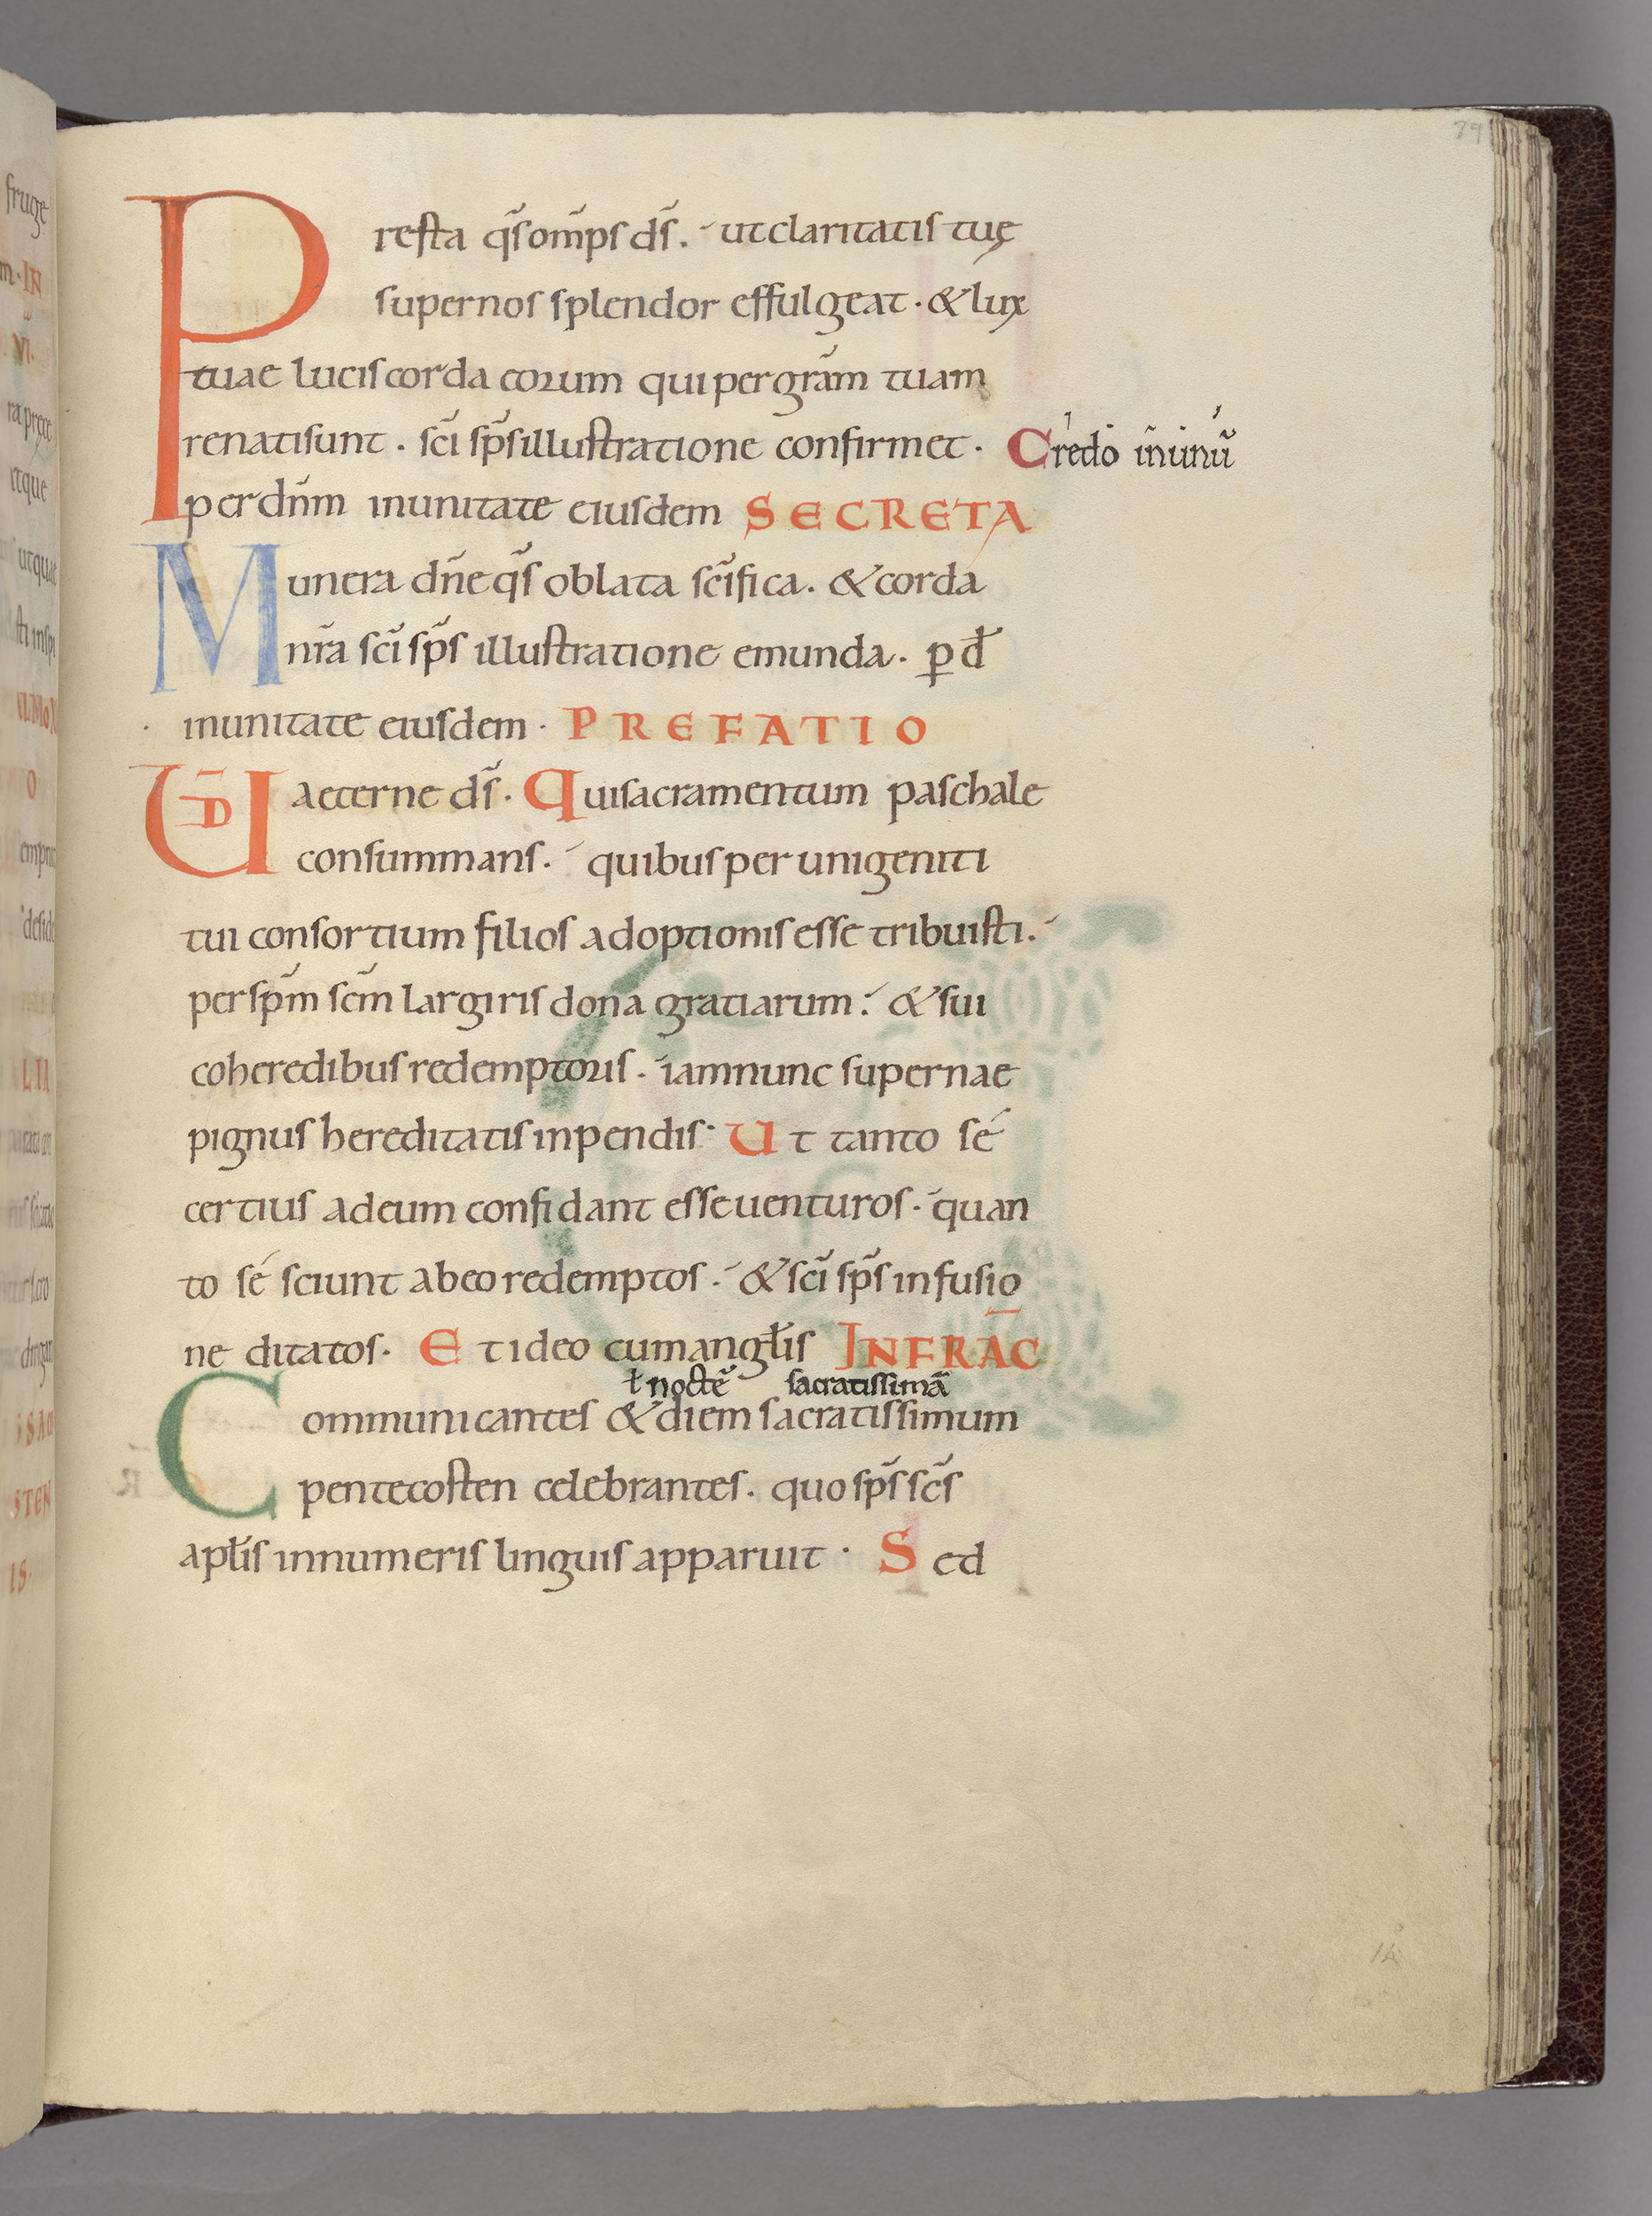 79
Presta q̃s om̃ps ds̃. ut claritatis tuę
supernos splendor effulgeat. & lux
tuae lucis corda eorum qui per gram̃ tuam
renati sunt. sci̇̃ sp̃s illustratione confirmet. Credo in unũ
per dnm̃ in unitate eiusdem SECRETA
Munera dñe q̃s oblata sc̃ifica. & corda
nr̃a sc̃i sp̃s illustratione emunda. p̱ đ
in unitate eiusdem. PREFATIO
UD̄ aeterne ds̃. Qui sacramentum paschale
consummans. quibus per unigeniti
tui consortium filios adoptionis esse tribuisti.
per sp̃m sc̃m largiris dona gratiarum. & sui
coheredibus redemptoris. iam nunc supernae
pignus hereditatis inpendis. Ut tanto sé
certius ad eum confidant esse uenturos. quan
to sé sciunt ab eo redemptos. & sc̃i sp̃s infusio
ne ditatos. Et ideo cum angłis INFRA ĀC
ł noctẽ sacratissimã
Communicantes & diem sacratissimum
pentecosten celebrantes. quo sp̃s sc̃s
apłis innumeris linguis apparuit. Sed